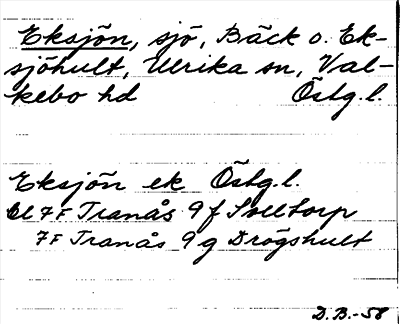 Eksjön, sjö, Bäck o. Ek-
sjöhult, Ulrika sn, Val-
kebo hd Östg.l.
Eksjön ek Östg.l.
bl 7F Tranås 9f Solltorp
7F Tranås 9g Drögshult
D.B.-58